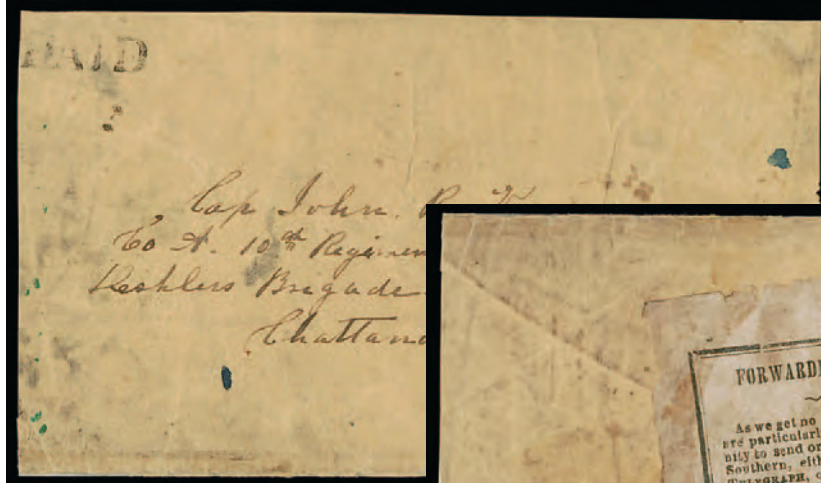 PAID
Cap John. R.
Co A. 10th Regimen
Deshlers Brigade
Chattano
FORWARDE
As we get no
are particularl
nity to send or
Southern, eith
TELEGRAPH, o